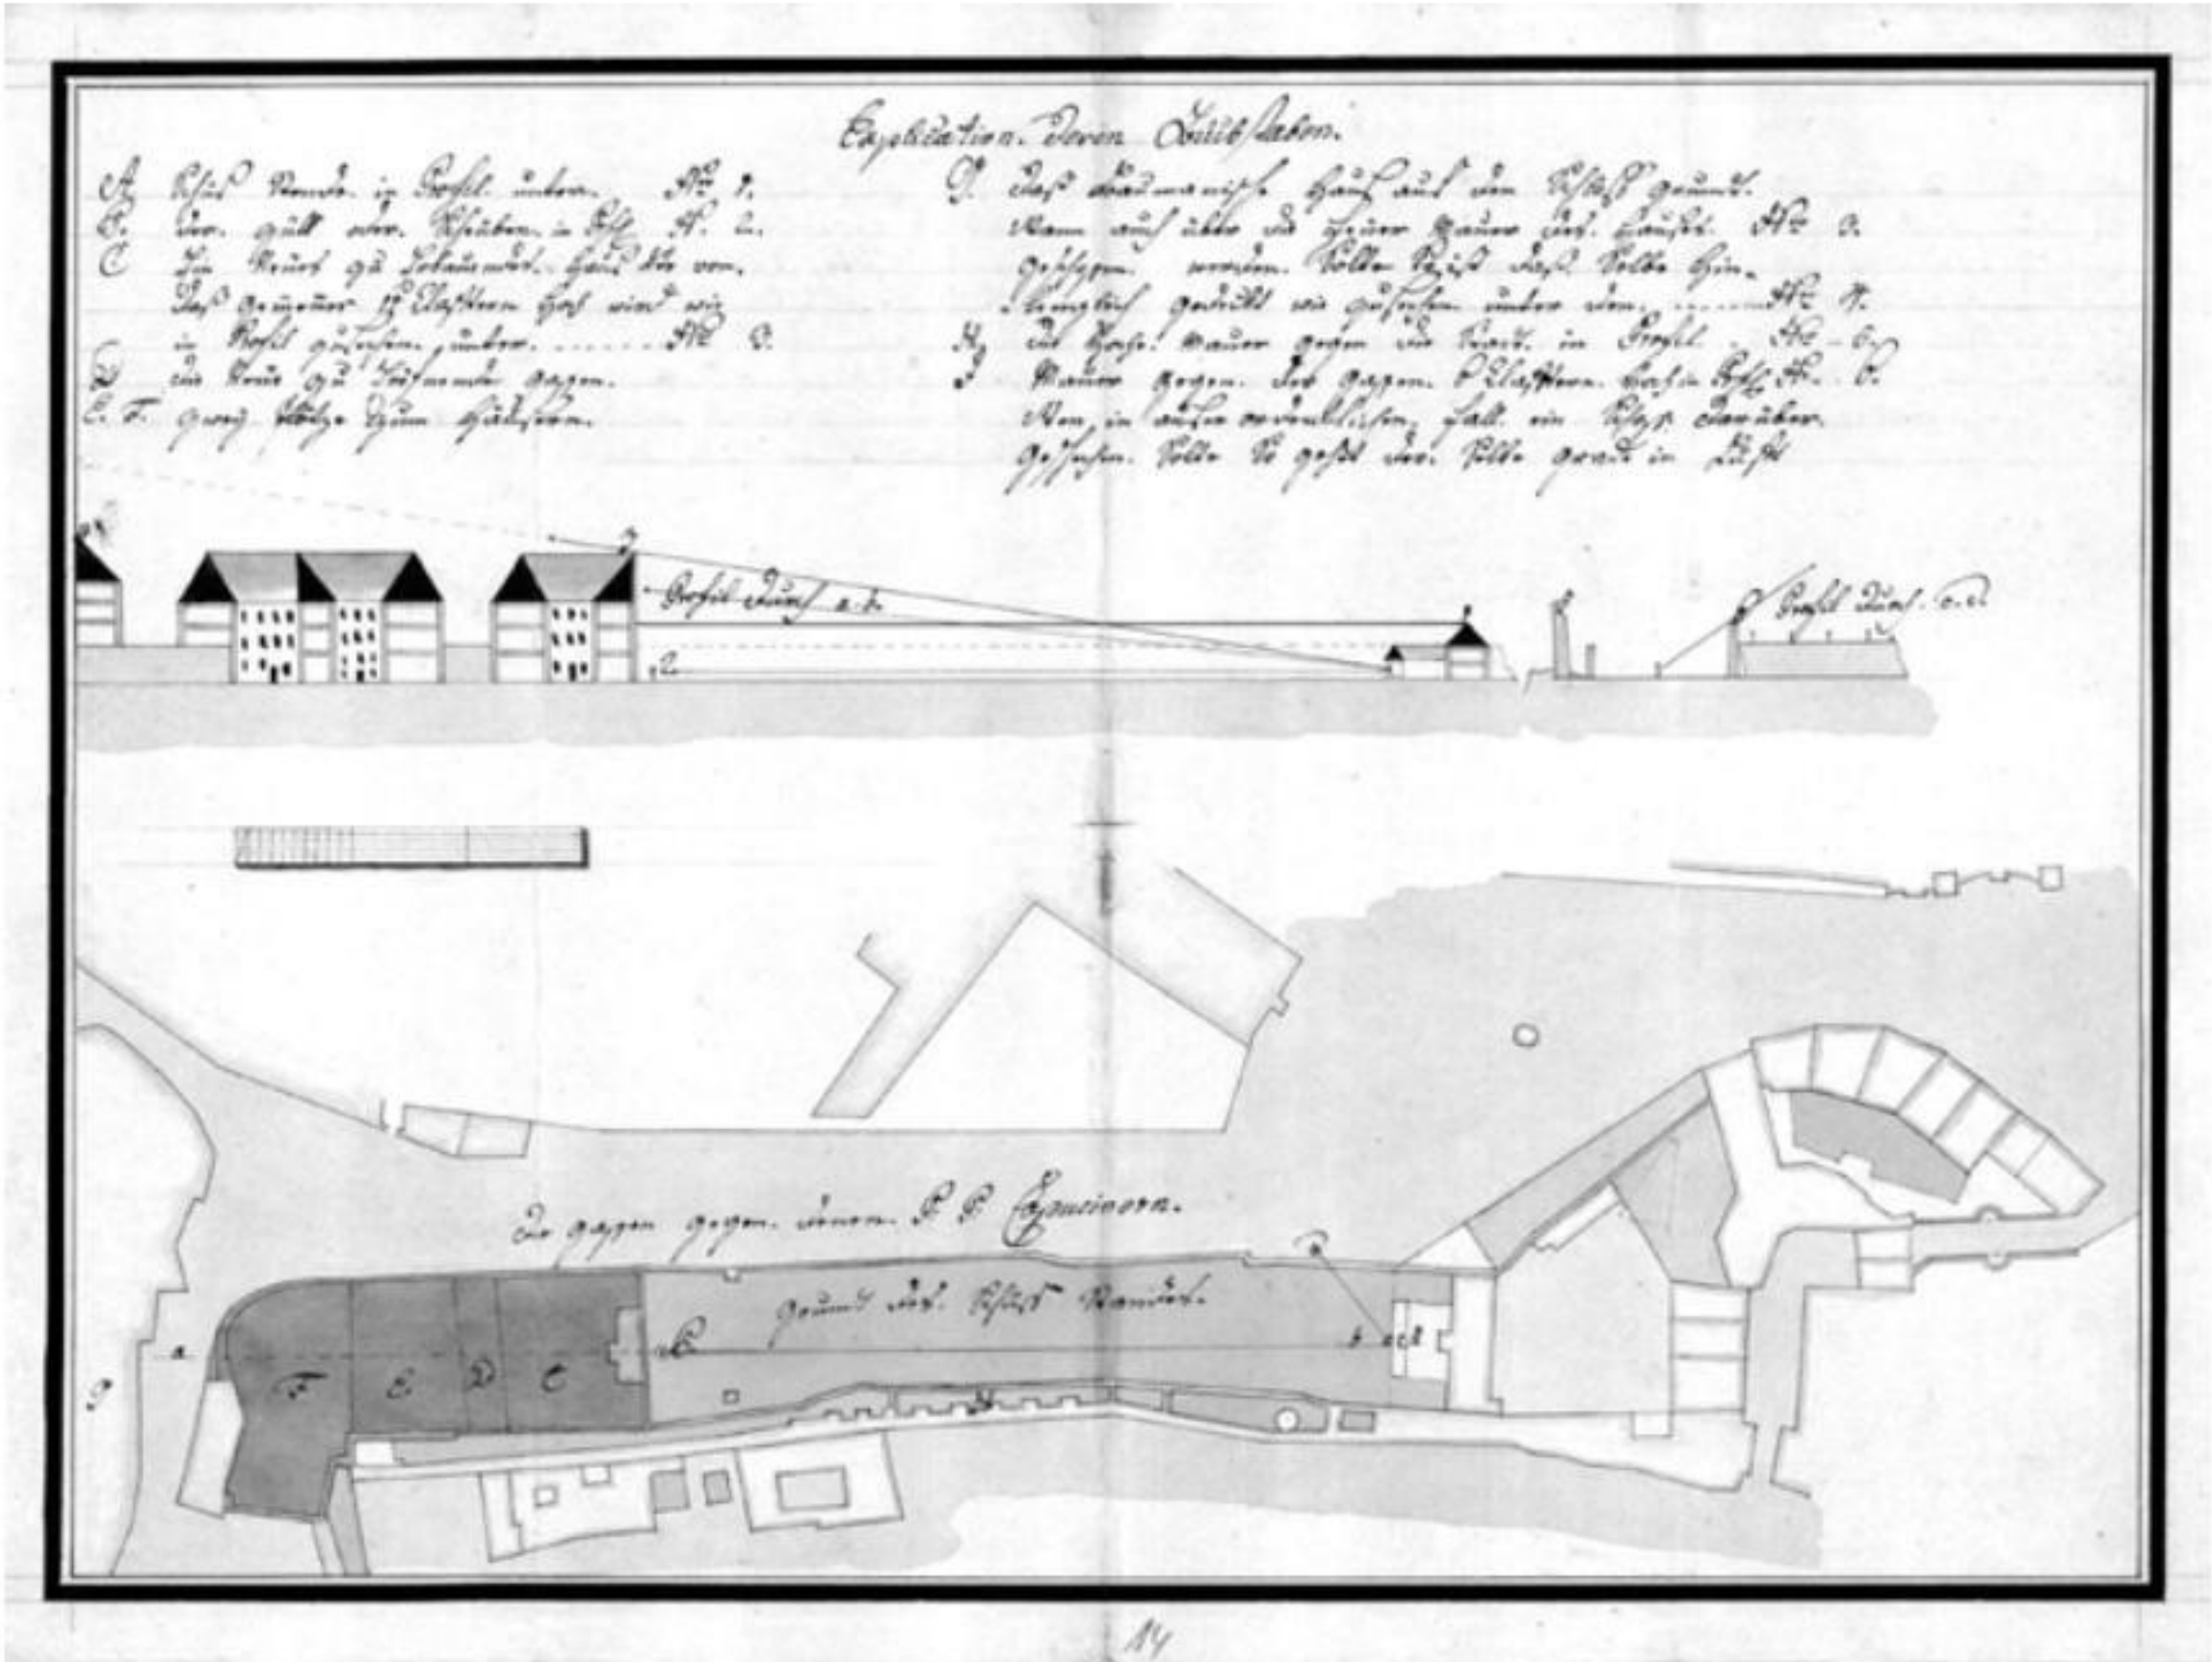 Explication. Deren Buchstaben.
A Schus Stande. in Profil. unter. No 1.
B. der. oder. Scheuben. in Profil No. 2.
C Ein Neues zu Erbauendes. Haus die von.
Das gemeuer Claftern hoch wird wie
in Profil zusehen. unter. ...... No 3.
D die Neue zu gassen.
E. F. zwey Plätze zum Häusern.
G. Daß Haus auf den Schloss grundt.
Wann auch über die Feuer Mauer des. Hauses. No 3.
geschossen. werden. Solte ist das. Selbe hin-
länglich gedeckt wie zusehen unter den. ...... No 4.
H, die Hohe. Mauer gegen die Stadt. in Profil. No 5.
I Mauer gegen. der gassen. 6 Claftern. hoch in Profil No. 6.
Wen, in auser ordentlichen, fall. ein Schuss darüber.
geschehen. Solte So gehet der. Selbe grad in Luft
Profil Durch a. b.
Profil Durch. c. d.
2.
Die gassen gegen. denen. P. P. Capucinern.
grund des. Schuss Standes.
a
F E. D C
B
b
A
H
G
14